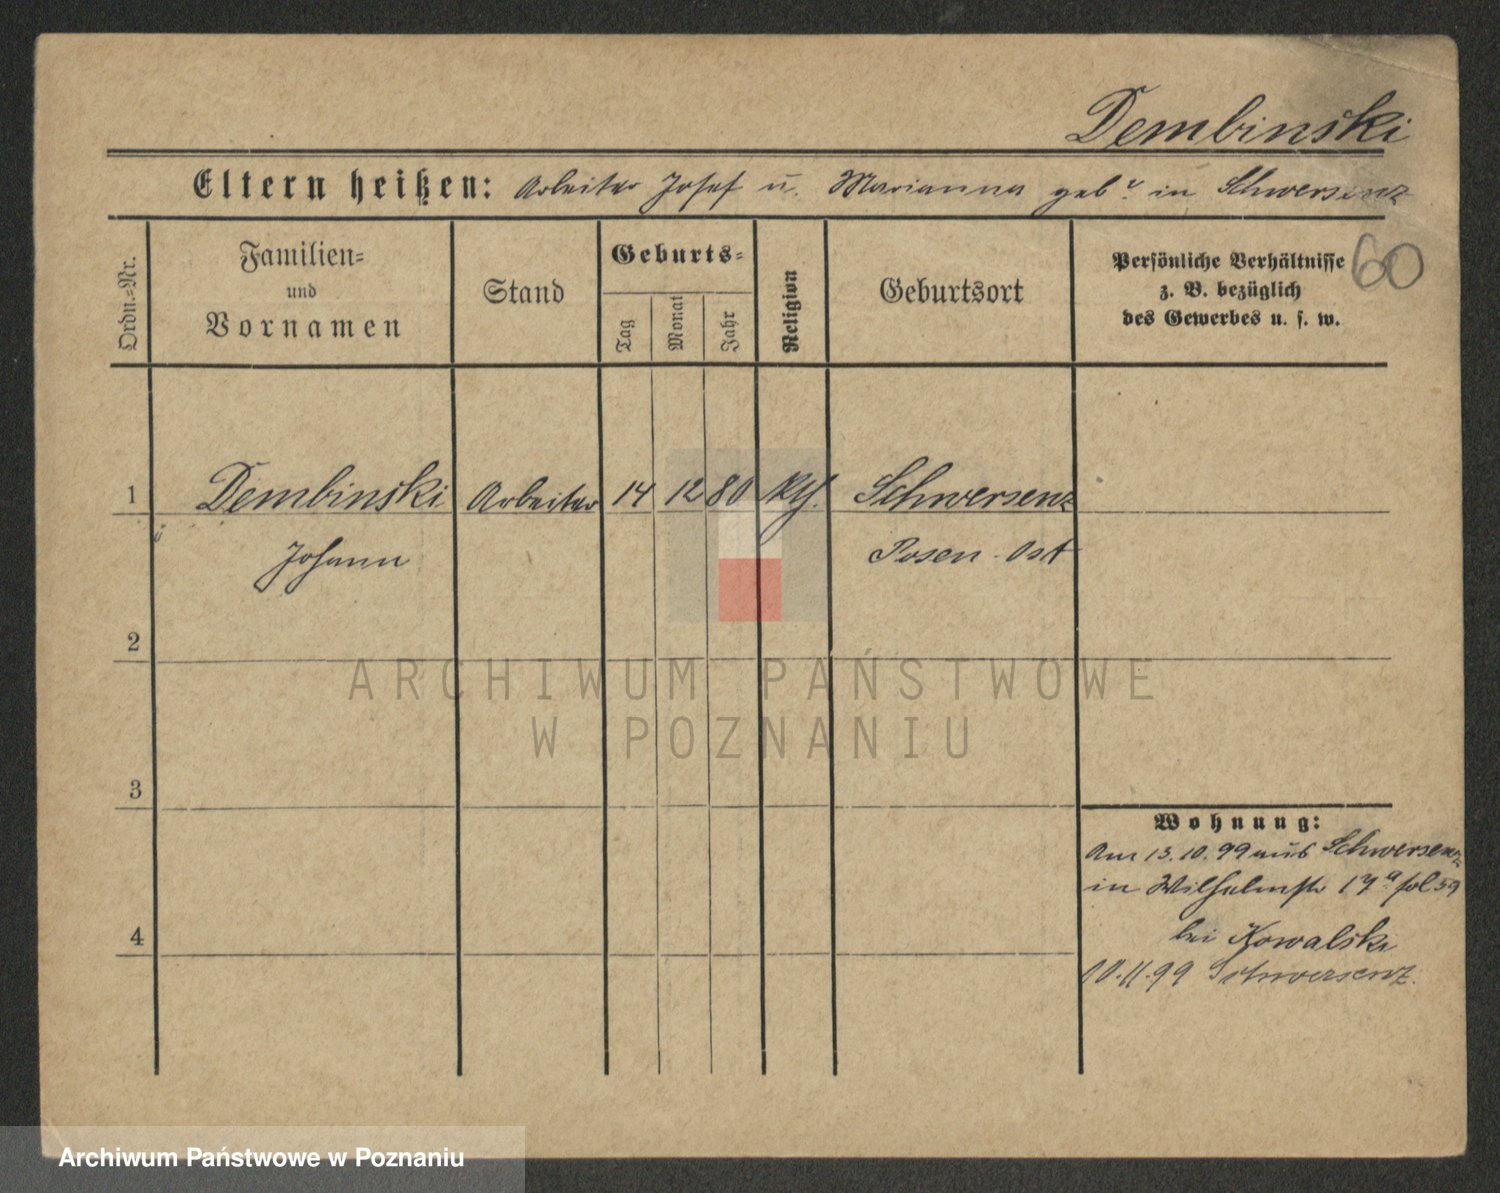 Dembinski
Eltern heißen: Arbeiter Josef u. Marianna geb ? in Schwersenz
Ordn.=Nr.
Familien=
und
Vornamen
Stand
Geburts=
Tag
Monat
Jahr
Religion
Geburtsort
Persönliche Verhältnisse
z. B. bezüglich
des Gewerbes u. s. w.
60
1 Dembinski Arbeiter 14 12 80 Schwersenz
Johann Posen-Ost
2
3
4
Wohnung:
Am 13.10.99 aus Schwersenz
in Wilhelmstr 17a fol 59
bei Kowalski
10.11.99 Schwersenz.
ARCHIWUM PAŃSTWOWE
W POZNANIU
Archiwum Państwowe w Poznaniu